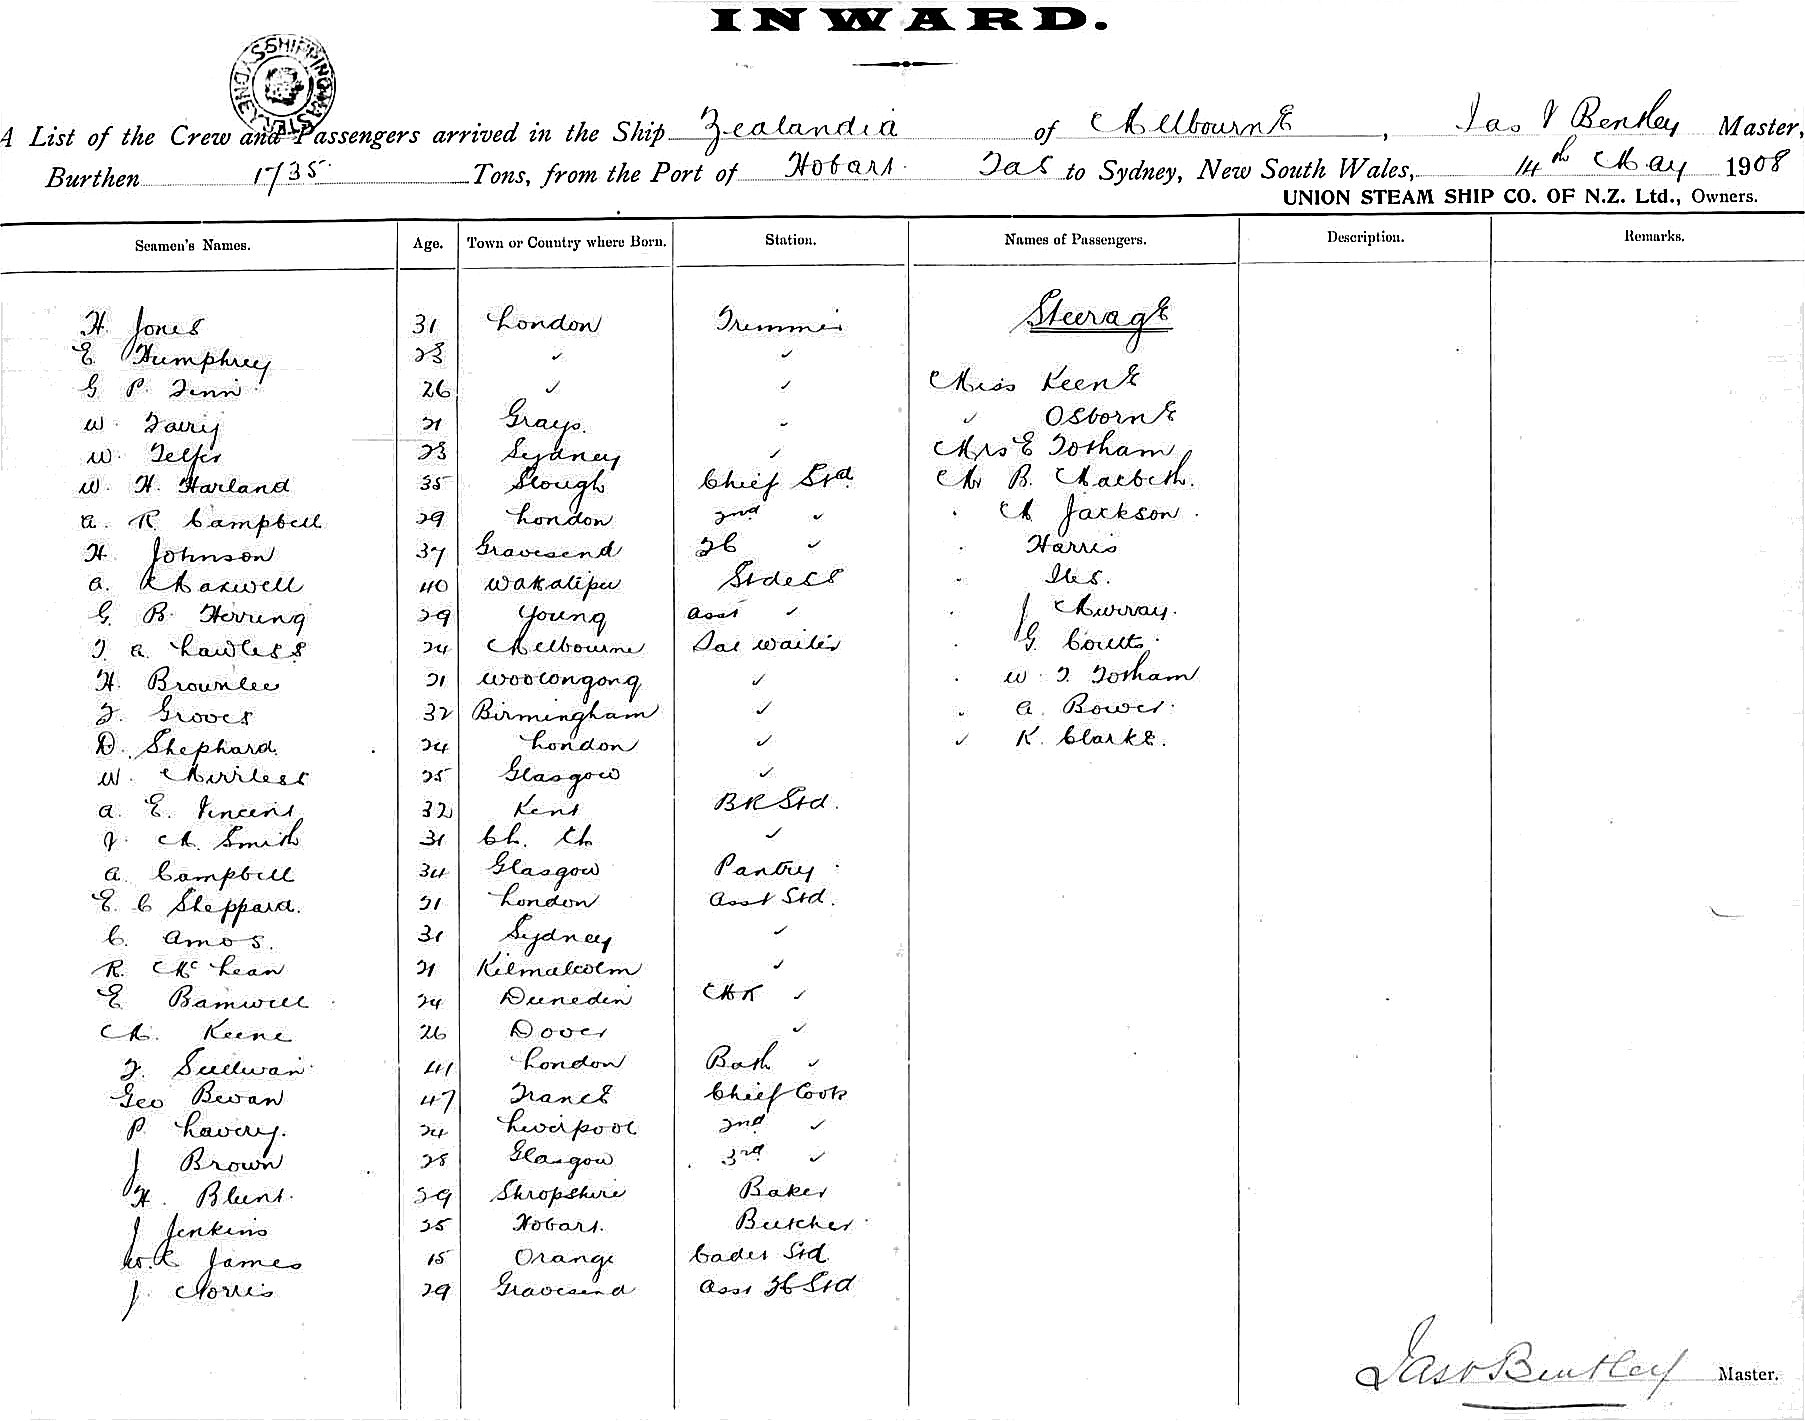 INWARD.
SYDNEY SHIPPING MASTER
A List of the Crew and Passengers arrived in the Ship Zealandia of Melbourne, Jas V Bentley Master,
Burthen 1735 Tons, from the Port of Hobart Tas to Sydney, New South Wales, 14th May 1908
UNION STEAM SHIP CO. OF N.Z. Ltd., Owners.
Seamen's Names. Age. Town or Country where Born. Station. Names of Passengers. Description. Remarks.
H. Jones 31 London Trimmer Steerage
E Humphrey 23 ✓ ✓
G P. Fenn 26 ✓ ✓ Miss Keene
W. 21 Grays. ✓ ✓ Osborne
W. Telfer 23 Sydney ✓ Mrs E Totham
W. H. Harland 35 Slough Chief Std. Mr B. Macbeth.
A. R Campbell 29 London 2nd ✓ " M Jackson
H. Johnson 37 Gravesend FC ✓ " Harris
A. Maxwell 40 Wakatipu Stdess " Iles.
G. B. Herring 29 Young Asst ✓ " J Murray.
T. A. Lawless 24 Melbourne Sal Waiter " G. Coutts
H. Brownlee 21 Woolongong ✓ " W. T. Totham
F. Groves 32 Birmingham ✓ " A. Bower
D. Shephard. 24 London ✓ ✓ K. Clarke.
W. Mirrless 25 Glasgow ✓
A. E. Vincent 32 Kent BK Std.
J. M. Smith 31 Ch. Ch ✓
A. Campbell 34 Glasgow Pantry
E. C Sheppard. 21 London Asst Std.
C. Amos. 31 Sydney ✓
R. McLean 21 Kilmalcolm ✓
E Bamwell 24 Dunedin ✓
M. Keene 26 Dover ✓
F. Sullivan 41 London Bath ✓
Geo Bevan 47 France Chief Cook
P. Lavery. 24 Liverpool 2nd ✓
J Brown 28 Glasgow 3rd ✓
H. Blunt. 29 Shropshire Baker
J Jenkins 25 Hobart. Butcher
W. R James 15 Orange Cadet Std
J. Norris 29 Gravesend Asst FC Std
Jas V Bentley Master.